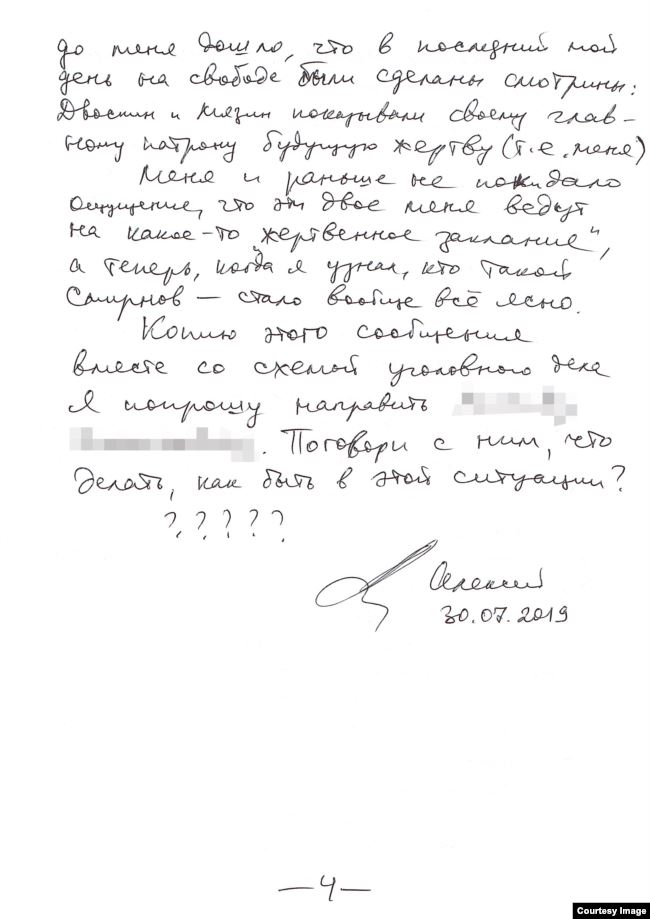 до меня дошло, что в последний мой
день на свободе были сделаны смотрины:
Двоскин и Мязин показывали своему глав-
ному патрону будущую жертву (т.е. меня)
Меня и раньше не покидало
ощущение, что эти двое меня ведут
на какое-то „жертвенное заклание",
а теперь, когда я узнал, кто такой
Смирнов — стало вообще всё ясно.
Копию этого сообщения
вместе со схемой уголовного дела
я попрошу направить
. Поговори с ним, что
делать, как быть в этой ситуации?
? ? ? ? ?
Алексей
30.07.2019
— 4 —
Courtesy Image